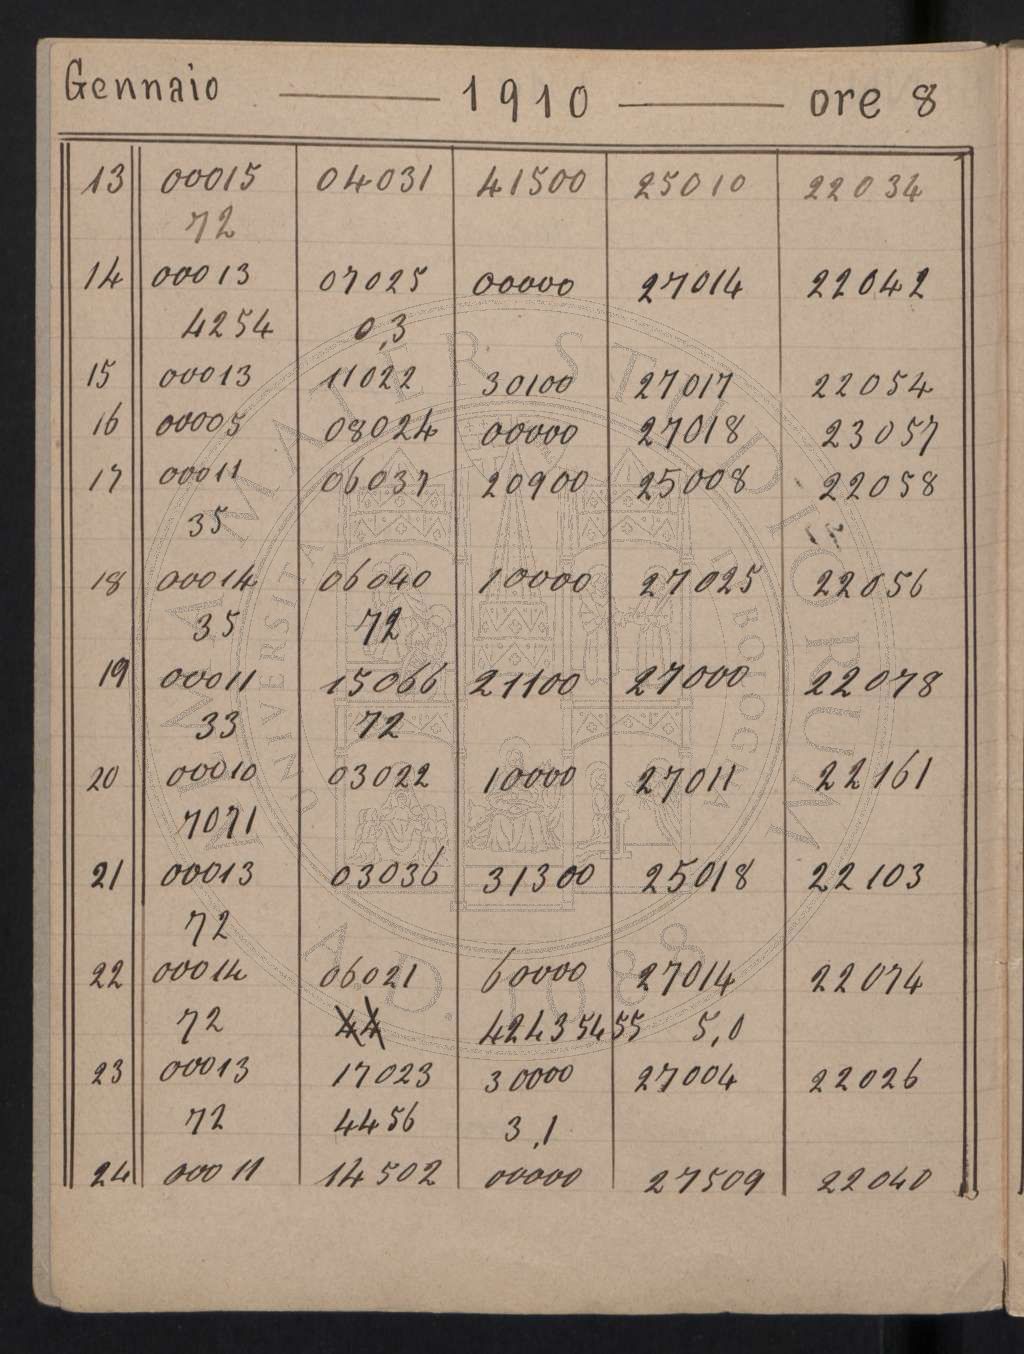 Gennaio — 1910 — ore 8
13 00015 04031 41500 25010 22034
72
14 00013 07025 00000 27014 22042
4254 0,3
15 00013 11022 30100 27017 22054
16 00005 08024 00000 27018 23057
17 00011 06037 20900 25008 22058
35
18 00014 06040 10000 27025 22056
35 72
19 00011 15066 21100 27000 22078
33 72
20 00010 03022 10000 27011 22161
7071
21 00013 03036 31300 25018 22103
72
22 00014 06021 60000 27014 22074
72 44 42435455 5,0
23 00013 17023 30000 27004 22026
72 4456 3,1
24 00011 14502 00000 27509 22040
ALMA MATER STUDIORUM
UNIVERSITA BOLOGNA
A.D. 1088